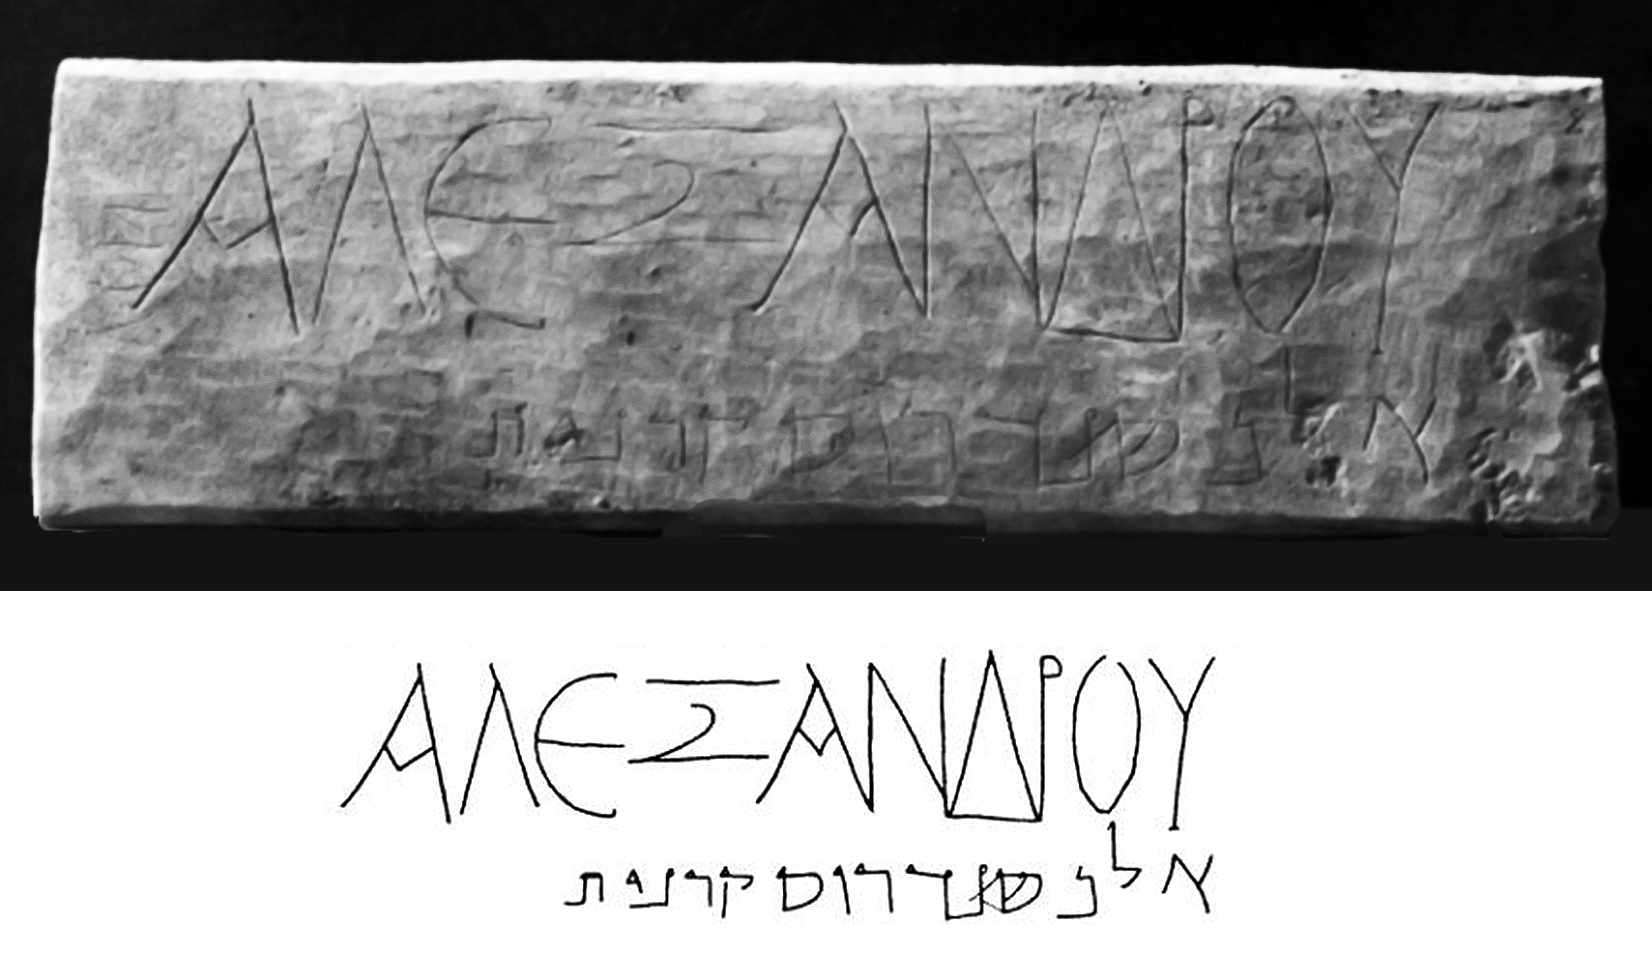 ΑΛΕΞΑΝΔΡΟΥ
אלכשנדרוס קרנית
ΑΛΕΞΑΝΔΡΟΥ
אלכשנדרוס קרנית